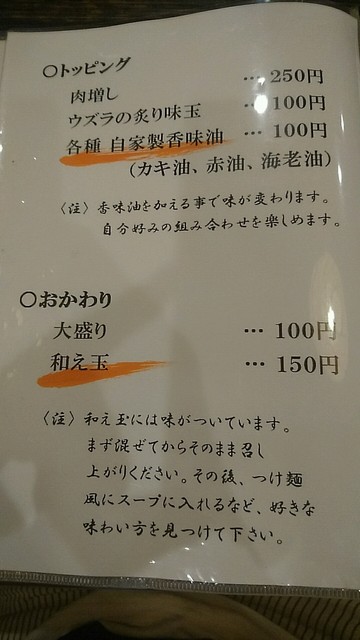 〇トッピング
肉増し … 250円
ウズラの炙り味玉 … 100円
各種 自家製香味油 … 100円
(カキ油、赤油、海老油)
〈注〉香味油を加える事で味が変わります。
自分好みの組み合わせを楽しめます。
〇おかわり
大盛り … 100円
和え玉 … 150円
〈注〉和え玉には味がついています。
まず混ぜてからそのまま召し
上がりください。その後、つけ麺
風にスープに入れるなど、好きな
味わい方を見つけて下さい。